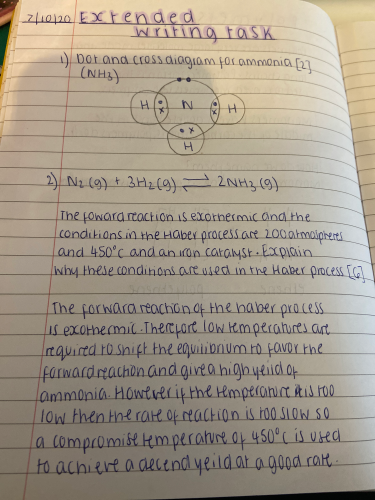 7/10/20 Extended
writing task
1) Dot and cross diagram for ammonia [2]
(NH3)
H N H
H
2) N2(g) + 3H2(g) ⇌ 2NH3(g)
The foward reaction is exothermic and the
conditions in the Haber process are 200 atmospheres
and 450°c and an iron catalyst. Explain
why these conditions are used in the Haber process [6]
The forward reaction of the haber process
is exothermic. Therefore low temperatures are
required to shift the equilibrium to favor the
forward reaction and give a high yeild of
ammonia. However if the temperature is too
low then the rate of reaction is too slow so
a compromise temperature of 450°c is used
to achieve a decend yeild at a good rate.